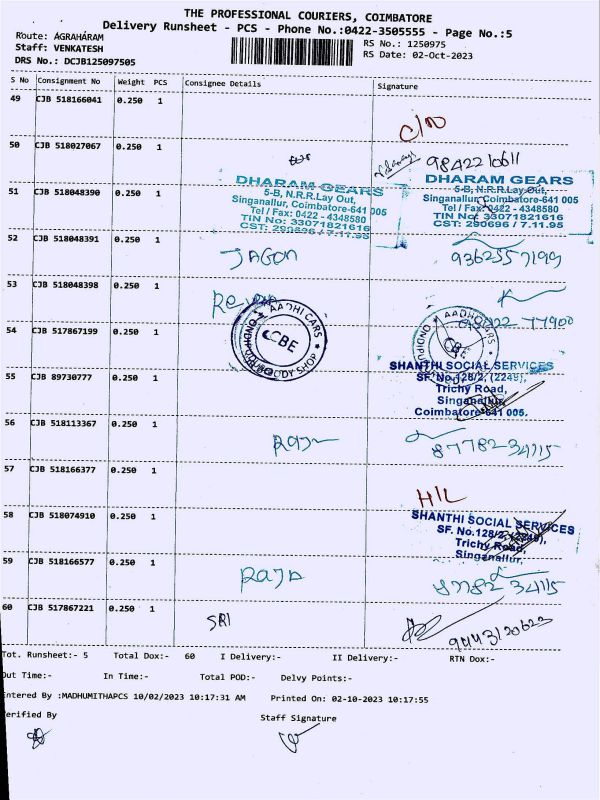 THE PROFESSIONAL COURIERS, COIMBATORE
Delivery Runsheet - PCS - Phone No.:0422-3505555 - Page No.:5
Route: AGRAHARAM
RS No.: 1250975
Staff: VENKATESH
RS Date: 02-Oct-2023
DRS No.: DCJB125097505
S No Consignment No Weight PCS Consignee Details Signature
49 CJB 518166041 0.250 1
C/O
50 CJB 518027067 0.250 1
9842210611
51 CJB 518048390 0.250 1
DHARAM GEARS
5-B, N.R.R.Lay Out,
Singanallur, Coimbatore-641 005
Tel / Fax: 0422 - 4348580
TIN No: 33071821616
CST: 290696 / 7.11.95
DHARAM GEARS
5-B, N.R.R.Lay Out,
Singanallur, Coimbatore-641 005
Tel / Fax: 0422 - 4348580
TIN No: 33071821616
CST: 290696 / 7.11.95
52 CJB 518048391 0.250 1
JAGON
9362557199
53 CJB 518048398 0.250 1
54 CJB 517867199 0.250 1
AADHI CARS
CBE
BODY SHOP
AADHI CARS
CBE
55 CJB 89730777 0.250 1
SHANTHI SOCIAL SERVICES
SF. No.128/2, (2249),
Trichy Road,
Singanallur,
Coimbatore-641 005.
56 CJB 518113367 0.250 1
Raja
87782 34115
57 CJB 518166377 0.250 1
H/L
58 CJB 518074910 0.250 1
SHANTHI SOCIAL SERVICES
SF. No.128/2, (2249),
Trichy Road,
Singanallur,
59 CJB 518166577 0.250 1
Raja
87782 34115
60 CJB 517867221 0.250 1
SRI
9443120623
Tot. Runsheet:- 5 Total Dox:- 60 I Delivery:- II Delivery:- RTN Dox:-
Out Time:- In Time:- Total POD:- Delvy Points:-
Entered By :MADHUMITHAPCS 10/02/2023 10:17:31 AM Printed On: 02-10-2023 10:17:55
Verified By
Staff Signature